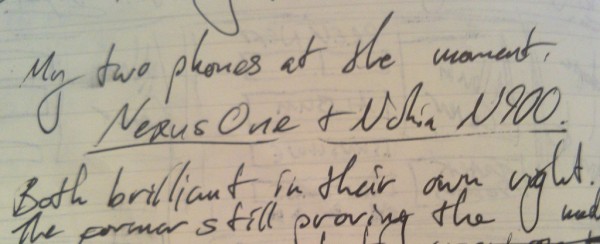 My two phones at the moment.
Nexus One + Nokia N900.
Both brilliant in their own right.
The former still proving the